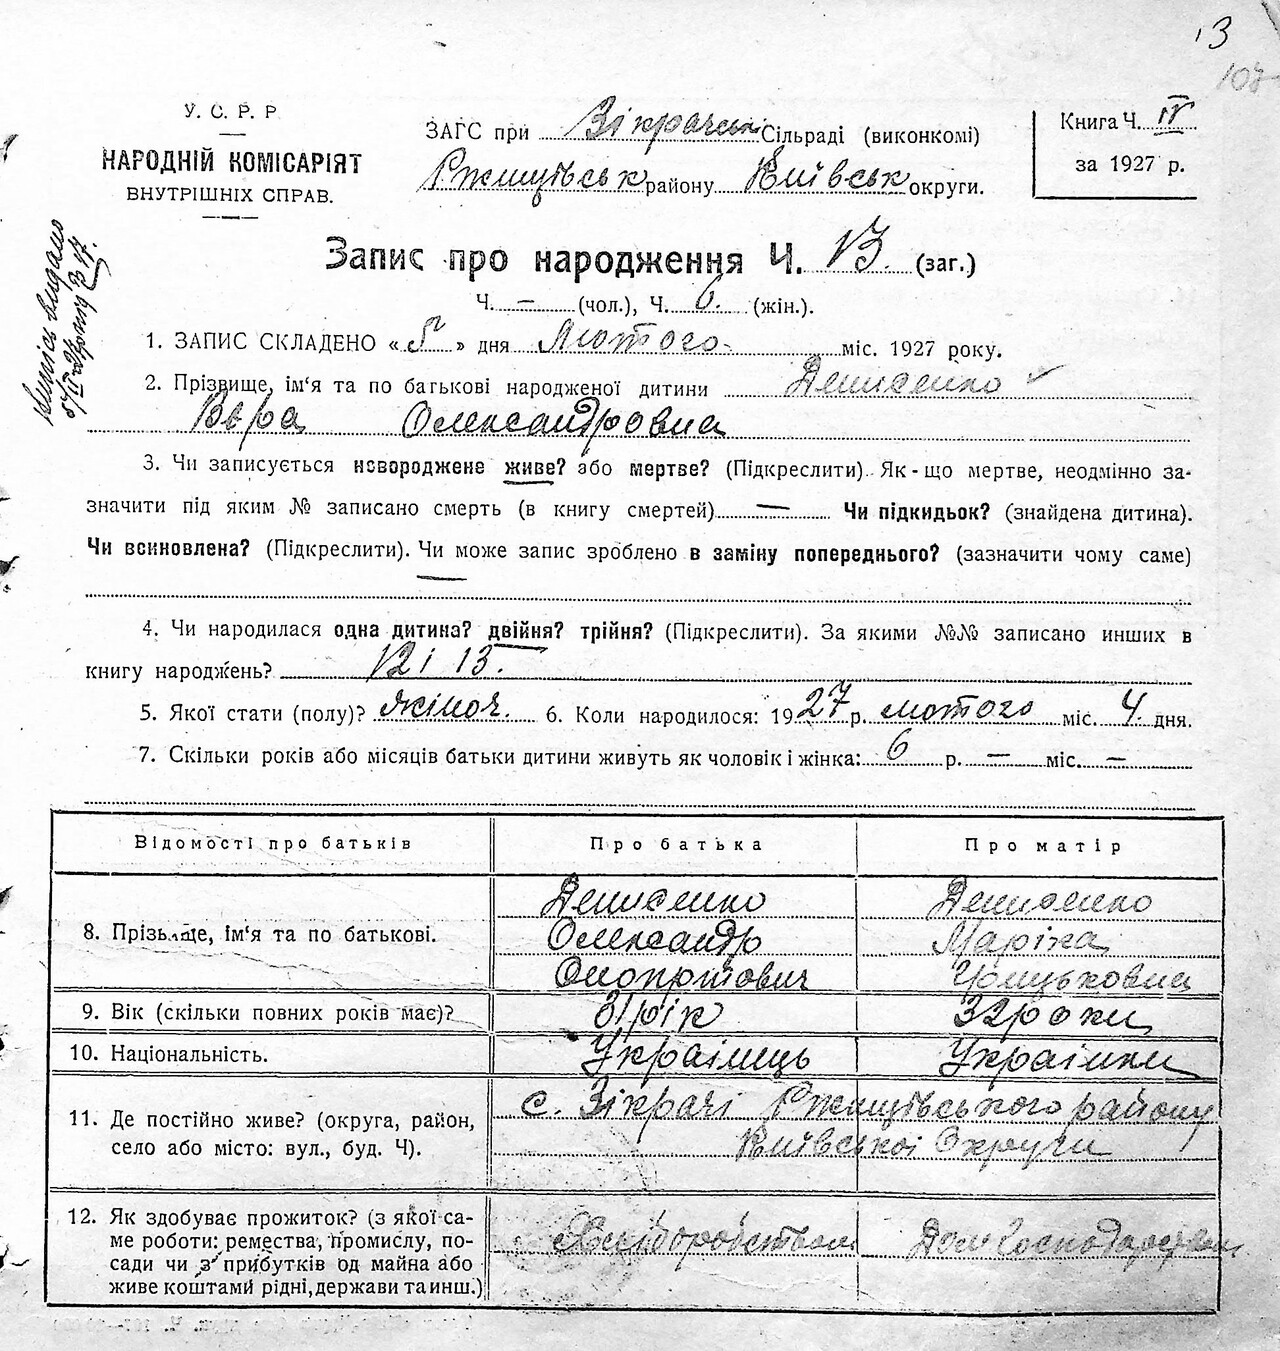 13
107
У. С. Р. Р
НАРОДНІЙ КОМІСАРІЯТ
ВНУТРІШНІХ СПРАВ.
ЗАГС при Зікрачськ Сільраді (виконкомі)
Ржищівськ району Київськ округи.
Книга Ч. IV
за 1927 р.
Запис про народження Ч. 13. (заг.)
Ч. — (чол.), Ч. 6. (жін.).
1. ЗАПИС СКЛАДЕНО « 5 » дня Лютого міс. 1927 року.
2. Прізвище, ім'я та по батькові народженої дитини Денисенко
Віра Олександровна
3. Чи записується новороджене живе? або мертве? (Підкреслити). Як-що мертве, неодмінно за-
значити під яким № записано смерть (в книгу смертей) — Чи підкидьок? (знайдена дитина).
Чи всиновлена? (Підкреслити). Чи може запис зроблено в заміну попереднього? (зазначити чому саме)
—
4. Чи народилася одна дитина? двійня? трійня? (Підкреслити). За якими №№ записано инших в
книгу народжень? 12 і 13.
5. Якої стати (полу)? жіноч. 6. Коли народилося: 1927 р. лютого міс. 4 дня.
7. Скільки років або місяців батьки дитини живуть як чоловік і жінка: 6 р. — міс. —
Відомості про батьків Про батька Про матір
8. Прізвище, ім'я та по батькові.
Денисенко Денисенко
Олександр Маріка
9. Вік (скільки повних років має)? 31 рік 32 роки
10. Національність. Українець Українка
11. Де постійно живе? (округа, район,
село або місто: вул., буд. Ч).
с. Зікрачі Ржищівського району
Київської Округи
12. Як здобуває прожиток? (з якої са-
ме роботи: ремества, промислу, по-
сади чи з прибутків од майна або
живе коштами рідні, держави та инш.)
Хліборобством Дом Господарством